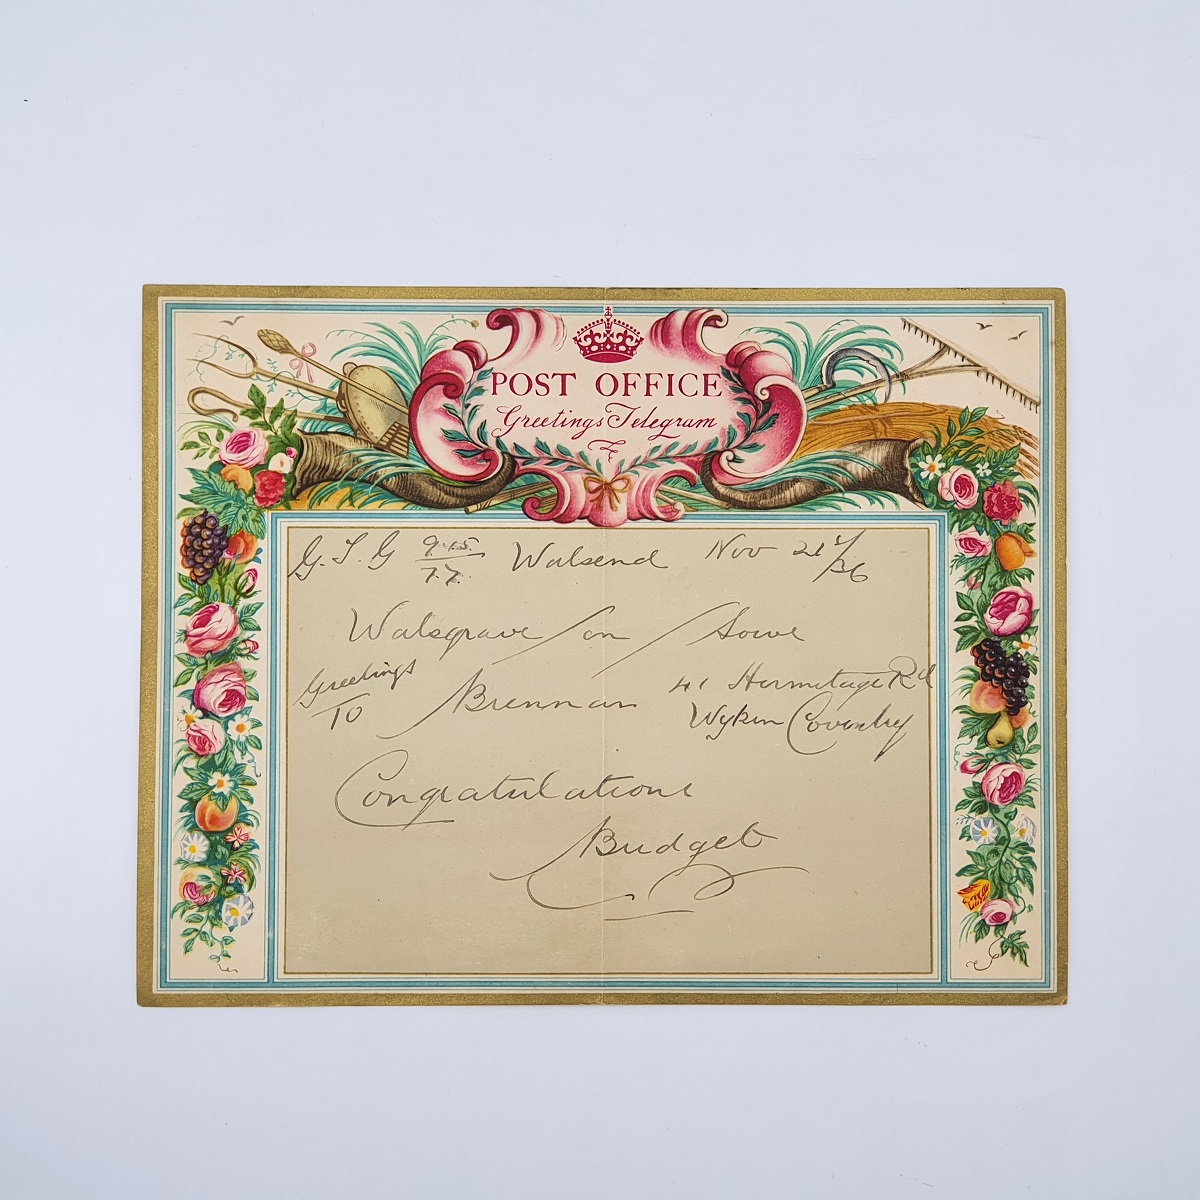 POST OFFICE
Greetings Telegram
G.T.G 9.45 Walsend Nov 21st/36
7.7.
Walsgrave / on / Sowe
Greetings
TO Brennan 41 Hermitage Rd
Wyken Coventry
Congratulations
Budget